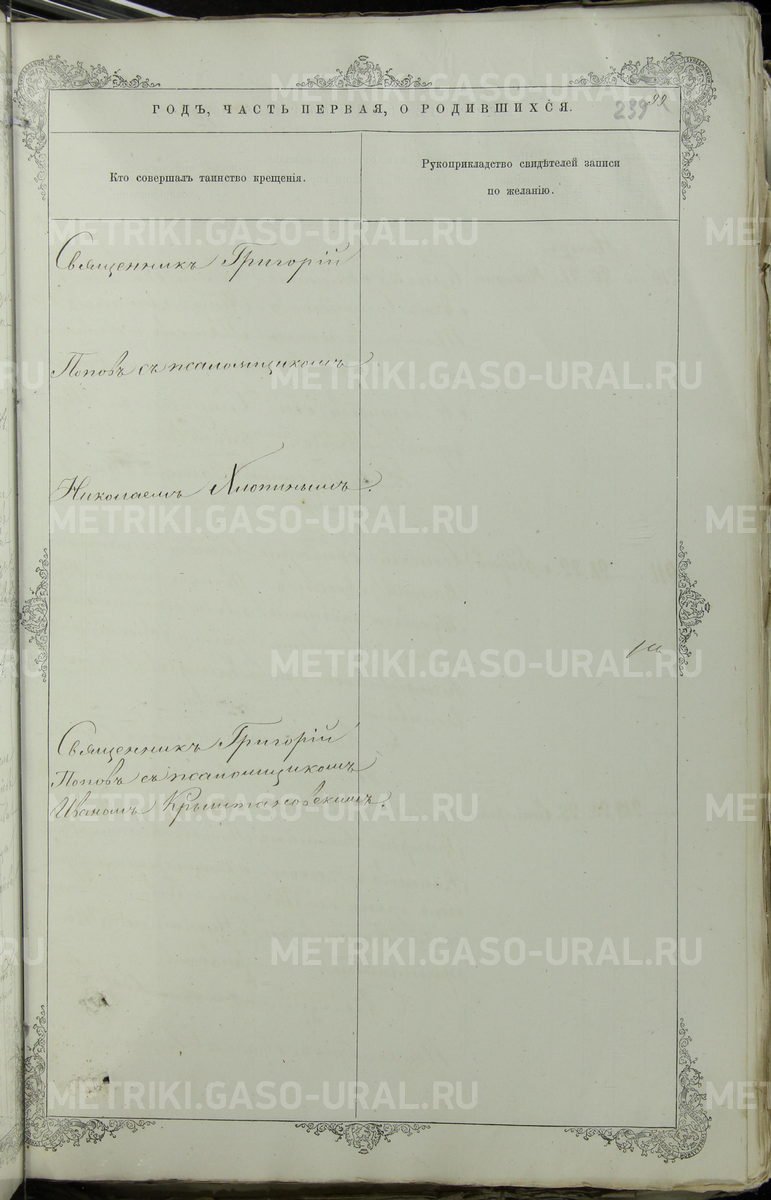 ГОДЪ, ЧАСТЬ ПЕРВАЯ, О РОДИВШИХСЯ.
239
99
Кто совершалъ таинство крещенія.
Рукоприкладство свидѣтелей записи
по желанію.
Священникъ Григорій
Поповъ съ псаломщикомъ
Николаемъ Хлопинымъ.
Священникъ Григорій
Поповъ съ псаломщикомъ
Иваномъ Крыштановскимъ.
METRIKI.GASO-URAL.RU